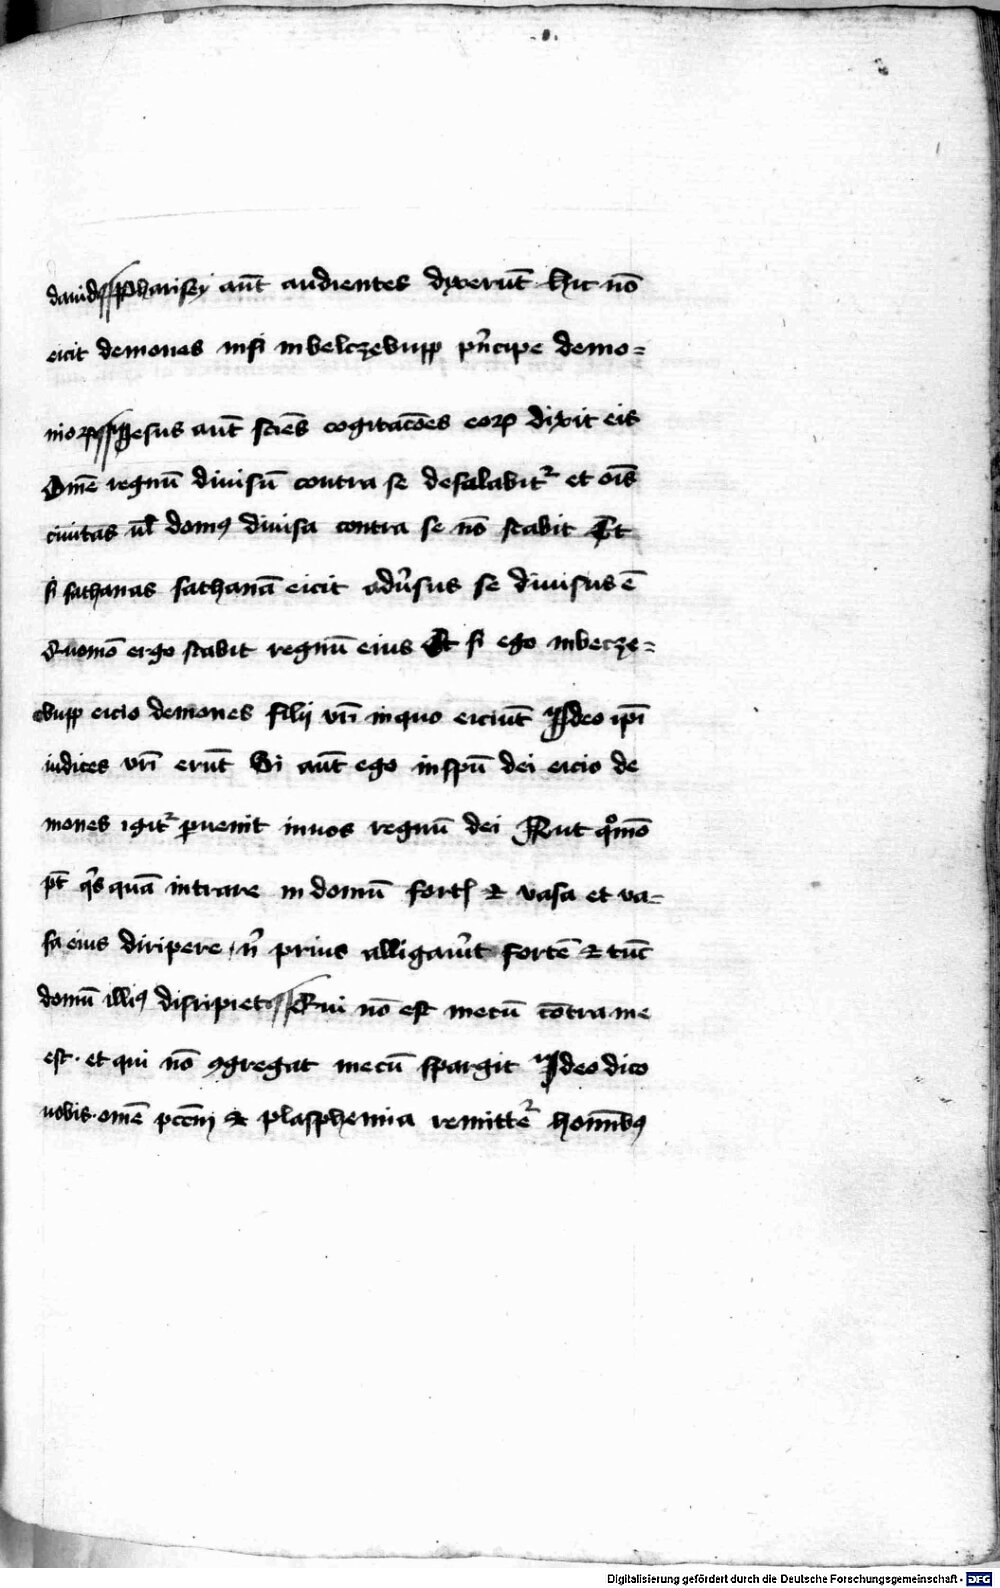 dauid Pharisey aūt audientes dyxerūt hic nō
eicit demones nisi inbelczebupp pn̄cipe demo=
nioꝝ Jesus aūt sciēs cogitacōes eoꝝ dixit eis
Omē regnū diuisū contra se desalabitr̉ et oīs
ciuitas ul̄ domꝰ diuisa contra se nō stabit Et
si sathanas sathanā eicit adūsus se diuisus ē
Quomō ergo stabit regnū eius Et si ego inbecze=
bupp eicio demones filij vr̄i inquo eiciūt Jdeo ip̄i
iudices vr̄i erūt Si aūt ego inspū dei eicio de
mones igitr̉ ꝑuenit inuos regnū dei Aut qͦmō
pt̄ qͥsquā intrare in domū fortꝭ ⁊ vasa et va=
sa eius diripere n̄ prius alligaūit fortē ⁊ tūc
domū illiꝰ disripiet Qui nō est mecū cōtra me
est · et qui nō ꝯgregat mecū spargit Jdeo dico
uobis · omē pccm̄ ⁊ plasphemia remittēr̉ homībꝰ
Digitalisierung gefördert durch die Deutsche Forschungsgemeinschaft - DFG